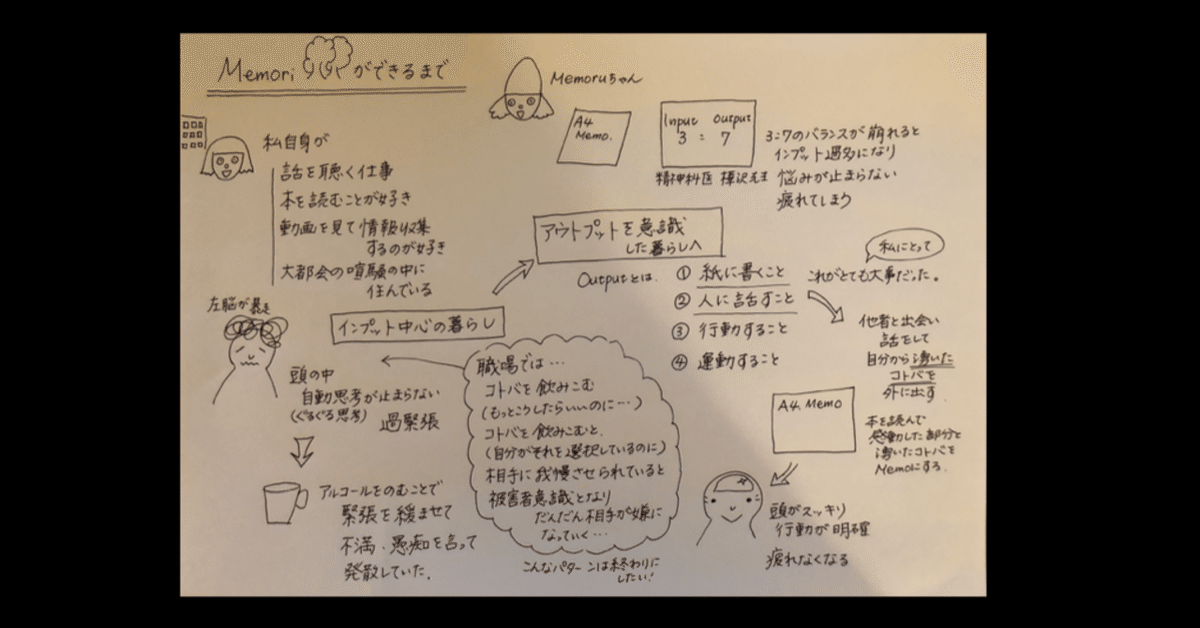 Memori がができるまで
Memoruちゃん
A4
Memo.
Input Output
3 : 7
精神科医 樺沢先生
3:7のバランスが崩れると
インプット過多になり
悩みが止まらない
疲れてしまう
私自身が
話を聴く仕事
本を読むことが好き
動画を見て情報収集
するのが好き
大都会の喧騒の中に
住んでいる
インプット中心の暮らし
アウトプットを意識
した暮らしへ
Outputとは、
① 紙に書くこと
② 人に話すこと
③ 行動すること
④ 運動すること
私にとって
これがとても大事だった。
他者と出会い
話をして
自分から湧いた
コトバを
外に出す
左脳が暴走
頭の中
自動思考が止まらない
(ぐるぐる思考) 過緊張
アルコールをのむことで
緊張を緩ませて
不満、愚痴を言って
発散していた.
職場では…
コトバを飲みこむ
(もっとこうしたらいいのに…)
コトバを飲みこむと、
(自分がそれを選択しているのに)
相手に我慢させられていると
被害者意識となり
だんだん相手が嫌に
なっていく…
こんなパターンは終わりに
したい!
A4. Memo
本を読んで
感動した部分と
湧いたコトバを
Memoにする.
頭がスッキリ
行動が明確
疲れなくなる